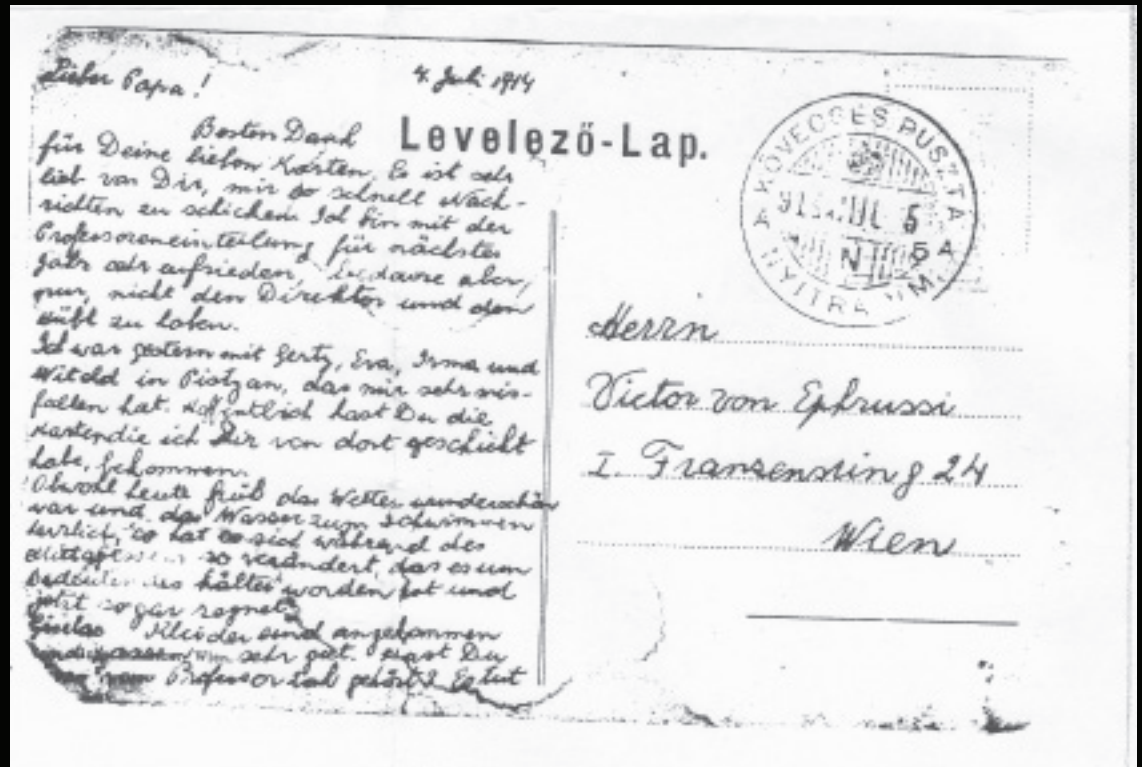 Lieber Papa!
4. Juli 1914
Levelező-Lap.
Besten Dank
für Deine lieben Karten. Es ist sehr
lieb von Dir, mir so schnell Nach-
richten zu schicken. Ich bin mit der
Professoreneinteilung für nächstes
Jahr sehr zufrieden, aber,
nur, nicht den Direktor und den
zu haben.
Ich war gestern mit Gerty, Eva, Irma und
Witold in Pistyan, das mir sehr mis-
fallen hat. Hoffentlich hast Du die
Karten die ich Dir von dort geschickt
habe, bekommen.
Obwohl heute früh das Wetter wunderschön
war und das Wasser zum Schwimmen
herrlich, so hat es sich während des
Mittagessens so verändert, das es um
Bedeutendes kälter worden ist und
jetzt sogar regnet.
Giselas Kleider sind angekommen
und passen sehr gut. Hast Du
vom Professor gehört? Es tut
KÖVECSES PUSZTA
NYITRA VM.
JUL 5
N 5A
Herrn
Victor von Ephrussi
I. Franzensring 24
Wien